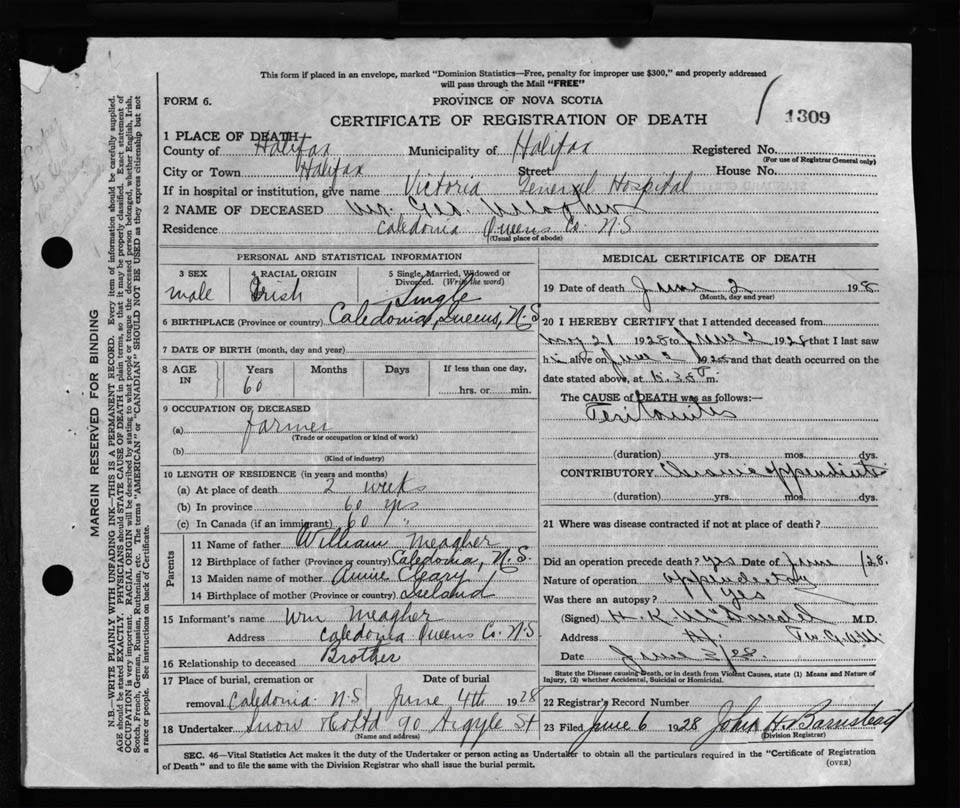 This form if placed in an envelope, marked "Dominion Statistics—Free, penalty for improper use $300," and properly addressed
will pass through the Mail "FREE"
FORM 6.
PROVINCE OF NOVA SCOTIA
CERTIFICATE OF REGISTRATION OF DEATH
1309
1 PLACE OF DEATH
County of Halifax Municipality of Halifax Registered No.
(For use of Registrar General only)
City or Town Halifax Street House No.
If in hospital or institution, give name Victoria General Hospital
2 NAME OF DECEASED Mr. Geo. Meagher
Residence Caledonia Queens Co. N.S.
(Usual place of abode)
PERSONAL AND STATISTICAL INFORMATION
3 SEX male
4 RACIAL ORIGIN Irish
5 Single, Married, Widowed or Divorced. (Write the word) Single
6 BIRTHPLACE (Province or country) Caledonia, Queens, N.S.
7 DATE OF BIRTH (month, day and year)
8 AGE IN Years Months Days If less than one day,
60 hrs. or min.
9 OCCUPATION OF DECEASED
(a) farmer
(Trade or occupation or kind of work)
(b)
(Kind of industry)
10 LENGTH OF RESIDENCE (in years and months)
(a) At place of death 2 weeks
(b) In province 60 yrs
(c) In Canada (if an immigrant) 60 "
Parents
11 Name of father William Meagher
12 Birthplace of father (Province or country) Caledonia, N.S.
13 Maiden name of mother Annie Cleary
14 Birthplace of mother (Province or country) Ireland
15 Informant's name Wm Meagher
Address Caledonia Queens Co. N.S.
16 Relationship to deceased Brother
17 Place of burial, cremation or removal Caledonia N.S. Date of burial June 4th 1928
18 Undertaker Snow & Co Ltd 90 Argyle St
(Name and address)
MEDICAL CERTIFICATE OF DEATH
19 Date of death June 2 198
(Month, day and year)
20 I HEREBY CERTIFY that I attended deceased from
May 21 1928 to June 2 1928 that I last saw
h alive on June 1928 and that death occurred on
date stated above, at m.
The CAUSE of DEATH was as follows:—
Peritonitis
(duration) yrs. mos. dys.
CONTRIBUTORY
(duration) yrs. mos. dys.
21 Where was disease contracted if not at place of death?
Did an operation precede death? yes Date of June /28.
Nature of operation
Was there an autopsy? yes
(Signed) H. K. M.D.
Address
Date June /28.
State the Disease causing Death, or in death from Violent Causes, state (1) Means and Nature of
Injury, (2) whether Accidental, Suicidal or Homicidal.
22 Registrar's Record Number
23 Filed June 6 1928 John H. Barnstead
(Division Registrar)
SEC. 46—Vital Statistics Act makes it the duty of the Undertaker or person acting as Undertaker to obtain all the particulars required in the "Certificate of Registration
of Death" and to file the same with the Division Registrar who shall issue the burial permit.
(OVER)
MARGIN RESERVED FOR BINDING
N.B.—WRITE PLAINLY WITH UNFADING INK—THIS IS A PERMANENT RECORD. Every item of information should be carefully supplied.
AGE should be stated EXACTLY. PHYSICIANS should STATE CAUSE OF DEATH in plain terms, so that it may be properly classified. Exact statement of
OCCUPATION is very important. RACIAL ORIGIN will be described by stating to what people or tongue the deceased person belonged, whether English, Irish,
Scotch, French, German, Russian, Ruthenian, etc. The terms "AMERICAN" or "CANADIAN" SHOULD NOT BE USED as they express citizenship but not
a race or people. See instructions on back of Certificate.